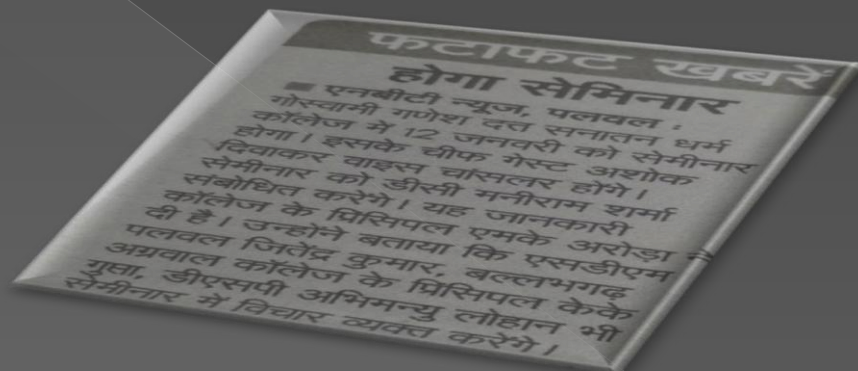 फटाफट खबरें
होगा सेमिनार
■ एनबीटी न्यूज, पलवल :
गोस्वामी गणेश दत्त सनातन धर्म
कॉलेज में 12 जनवरी को सेमीनार
होगा। इसके चीफ गेस्ट अशोक
दिवाकर वाइस चांसलर होंगे।
सेमीनार को डीसी मनीराम शर्मा
संबोधित करेंगे। यह जानकारी
कॉलेज के प्रिंसिपल एमके अरोड़ा ने
दी है। उन्होंने बताया कि एसडीएम
पलवल जितेंद्र कुमार, बल्लभगढ़
अग्रवाल कॉलेज के प्रिंसिपल केके
गुप्ता, डीएसपी अभिमन्यु लोहान भी
सेमीनार में विचार व्यक्त करेंगे।